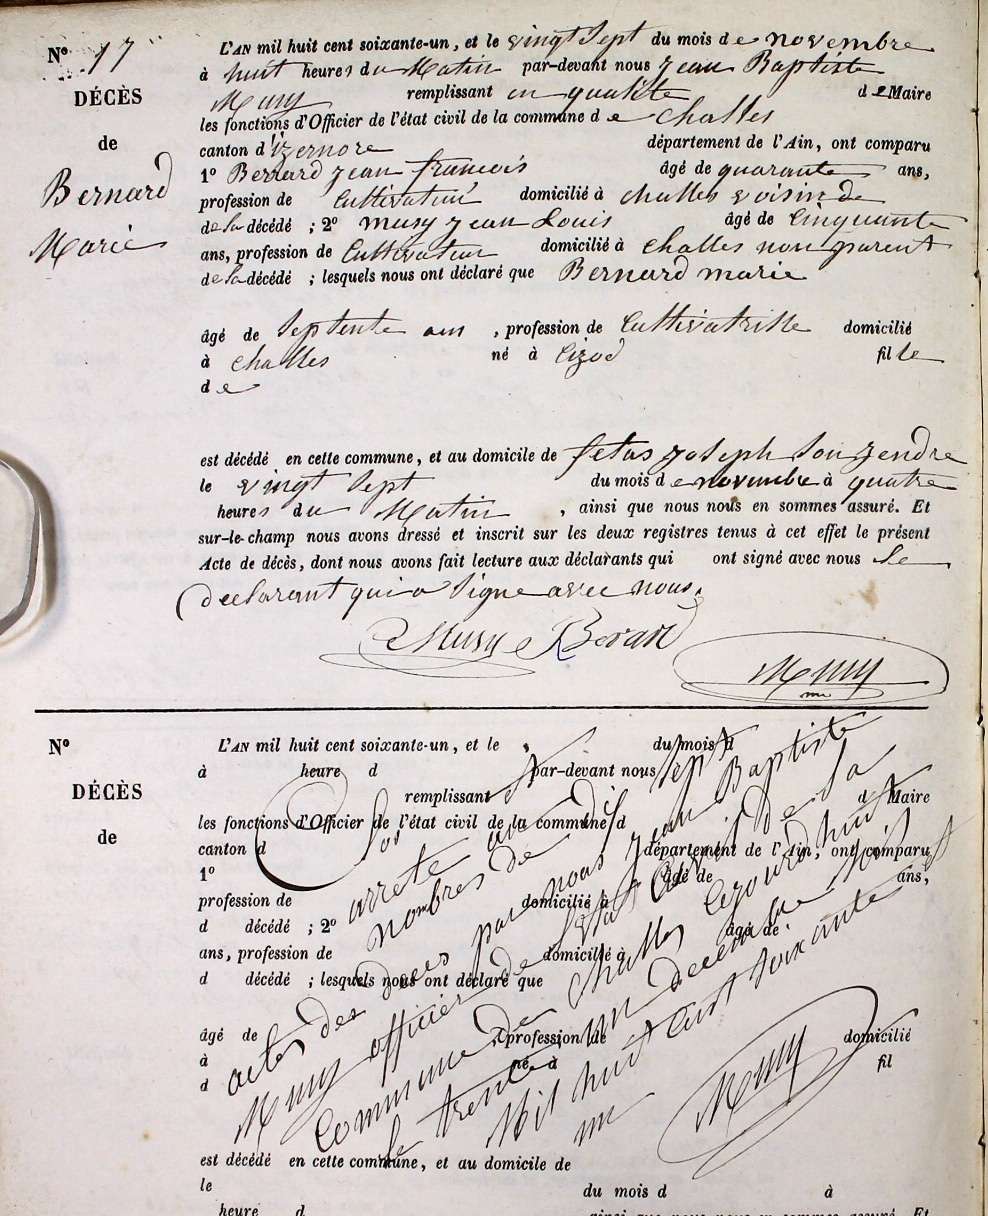 N° 17
DÉCÈS
de
Bernard
Marie
L'AN mil huit cent soixante-un, et le vingt sept du mois de novembre
à huit heures du Matin par-devant nous jean Baptiste
Muny remplissant en qualité de Maire
les fonctions d'Officier de l'état civil de la commune de challes
canton d'izernore département de l'Ain, ont comparu
1° Bernard jean francois âgé de quarante ans,
profession de Cultivateur domicilié à challes voisin de
de la décédé ; 2° musy jean Louis âgé de Cinquante
ans, profession de Cultivateur domicilié à challes non parent
de la décédé ; lesquels nous ont déclaré que Bernard marie
âgé de septente ans , profession de Cultivatrisse domicilié
à challes né à fille
de
est décédé en cette commune, et au domicile de joseph son jendre
le vingt sept du mois de novembre à quatre
heures du Matin , ainsi que nous nous en sommes assuré. Et
sur-le-champ nous avons dressé et inscrit sur les deux registres tenus à cet effet le présent
Acte de décès, dont nous avons fait lecture aux déclarants qui ont signé avec nous le
declarant qui a signe avec nous.
Musy Berard
Muny
N°
DÉCÈS
de
L'AN mil huit cent soixante-un, et le , du mois d
à heure d par-devant nous
remplissant d Maire
les fonctions d'Officier de l'état civil de la commune d
canton d département de l'Ain, ont comparu
1° âgé de ans,
profession de domicilié à
d décédé ; 2° âgé de
ans, profession de domicilié à
d décédé ; lesquels nous ont déclaré que
âgé de , profession de domicilié
à né à fil
d
est décédé en cette commune, et au domicile de
le du mois d à
heure d ainsi que nous nous en sommes assuré. Et
Clos et
arrete au
nombres de dix sept
actes des deces par nous jean Baptiste
Muny officier de l'etat Civil de la
Commune de challes Cejourd'huit
le trente un decembre
Mil huit Cent soixante et
un
Muny